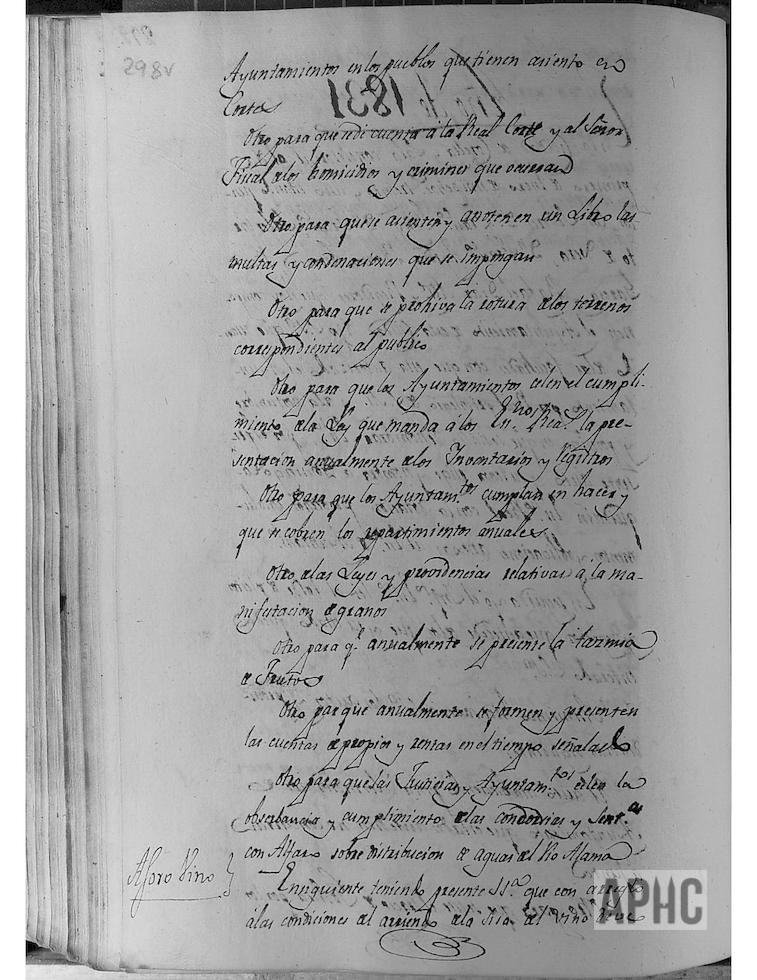 298v
Ayuntamientos en los pueblos que tienen asiento en
Cortes
Otro para que se dé cuenta á la Real Corte y al Señor
Fiscal de los homicidios y crimines que ocurran
Otro para que se asienten y anoten en un Libro las
multas y condenaciones que se impongan
Otro para que se prohiva la rotura de los terrenos
correspondientes al publico
Otro para que los Ayuntamientos celen el cumpli-
miento de la Ley que manda á los Es.nos Real.s la pre-
sentacion anualmente de los Inventarios y registros
Otro para que los Ayuntam.tos cumplan en hacer y
que se cobren los repartimientos anuales
Otro de las Leyes y providencias relativas á la ma-
nifestacion de granos
Otro para q.e anualmente se presente la tazmia
de Frutos
Otro para que anualmente se formen y presenten
las cuentas de propios y rentas en el tiempo señalado
Otro para que las Justicias y Ayuntam.tos celen la
observancia y cumplimiento de las concordias y Sent.as
con Alfaro sobre distribucion de aguas del Rio Alama
Aforo Vino
Enseguiente teniendo presente SS.a que con arreglo
á las condiciones del arriendo de la sisa del vino
APHC
1831